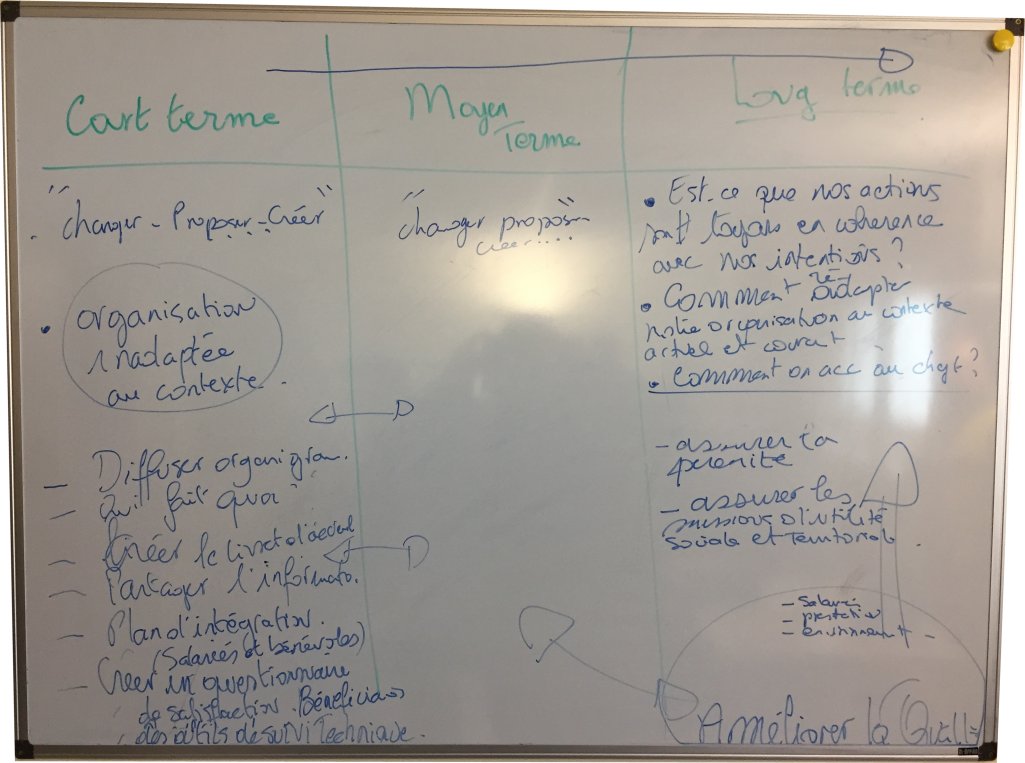 Court terme
" Changer - Proposer - Créer "
• organisation
inadaptée
au contexte.
— Diffuser organigram.
— Qui fait quoi ?
— Créer le livret d'accueil
— Partager l'informatio.
— Plan d'intégration.
(Salariés et bénévoles)
— Créer un questionnaire
de satisfaction. Bénéficiaires
des outils de suivi Technique.
Moyen
Terme
" changer proposer
créer....
Long terme
• Est-ce que nos actions
sont toujours en coherence
avec nos intentions ?
• Comment ré-adapter
notre organisation au contexte
actuel et courant
• Comment on acc au chgt ?
- assurer la
perenité
- assurer les
missions d'utilité
sociale et Territoriale.
- Salariés
- prestation
- environnement -
Améliorer la Qualité